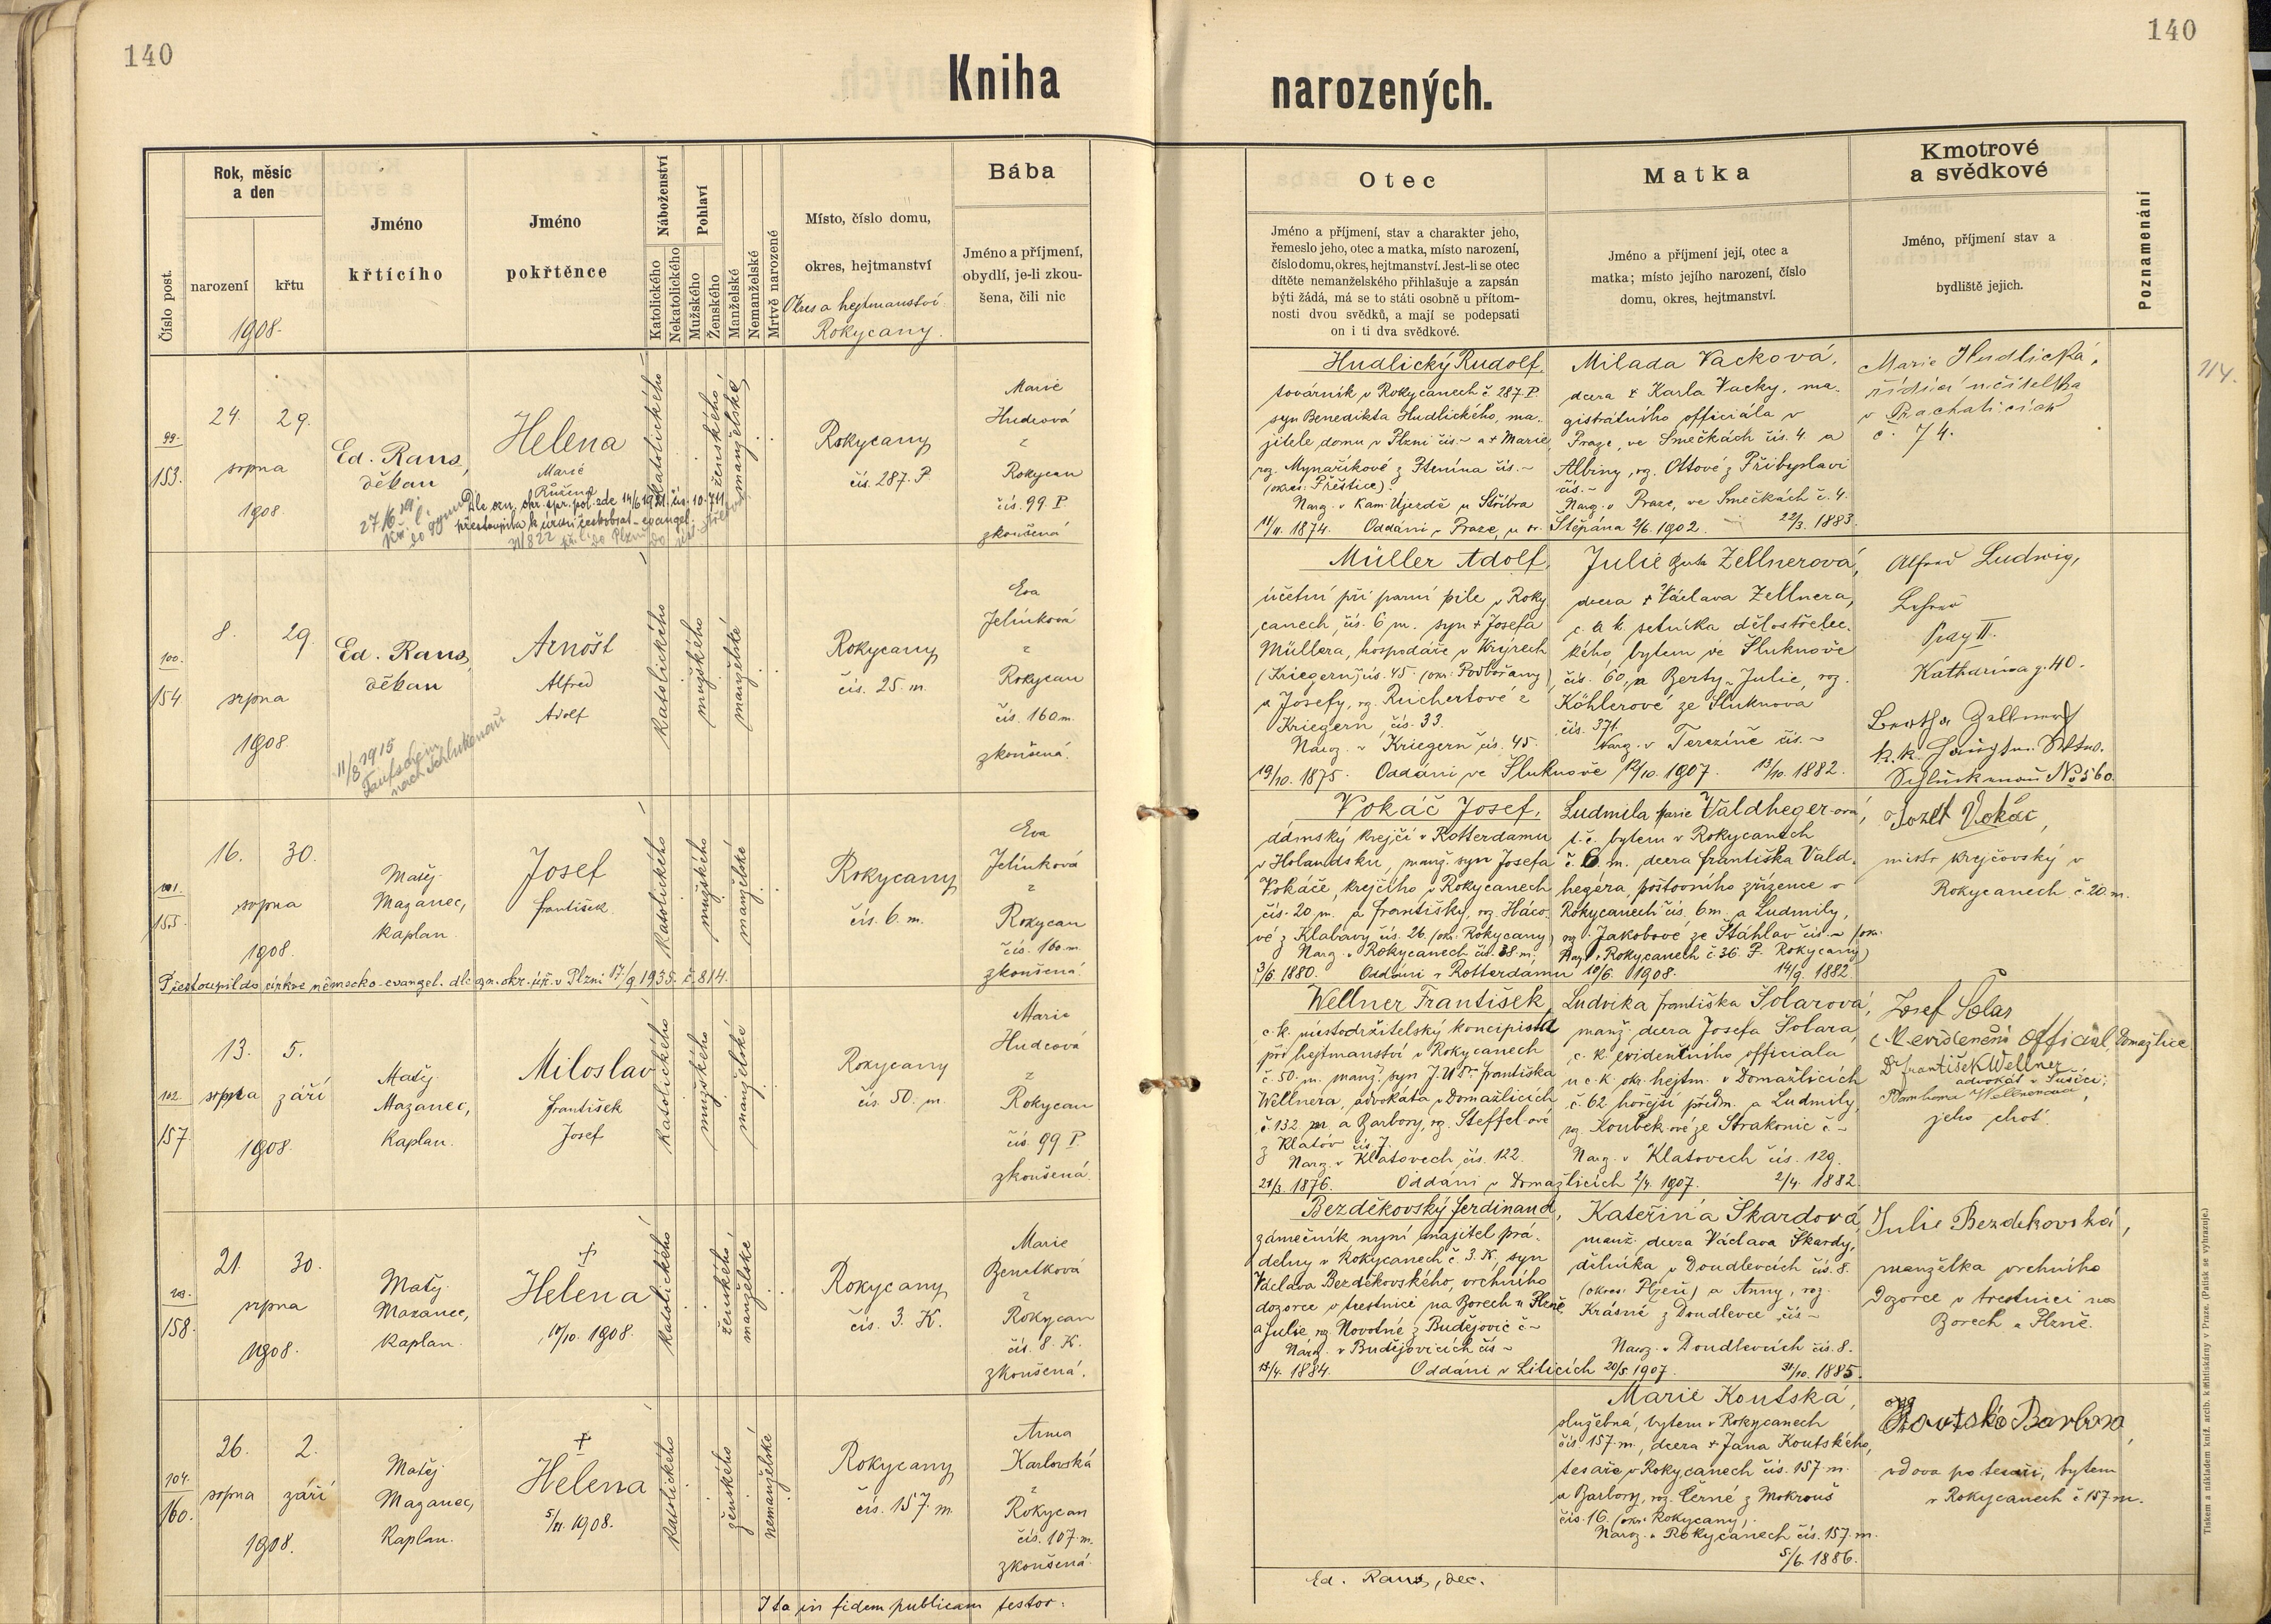 140
140
Kniha
narozených.
Číslo post.
Rok, měsíc
a den
narození
křtu
1908.
Jméno
křtícího
Jméno
pokřtěnce
Náboženství
Katolického
Nekatolického
Pohlaví
Mužského
Ženského
Manželské
Nemanželské
Mrtvě narozené
Místo, číslo domu,
okres, hejtmanství
Okres a hejtmanství
Rokycany.
Bába
Jméno a příjmení,
obydlí, je-li zkou-
šena, čili nic
Otec
Jméno a příjmení, stav a charakter jeho,
řemeslo jeho, otec a matka, místo narození,
číslo domu, okres, hejtmanství. Jest-li se otec
dítěte nemanželského přihlašuje a zapsán
býti žádá, má se to státi osobně u přítom-
nosti dvou svědků, a mají se podepsati
on i ti dva svědkové.
Matka
Jméno a příjmení její, otec a
matka; místo jejího narození, číslo
domu, okres, hejtmanství.
Kmotrové
a svědkové
Jméno, příjmení stav a
bydliště jejich.
Poznamenání
99.
153.
24. 29.
srpna
1908.
Ed. Rans,
děkan
Helena
Marie
Růžena
Dle ozn. okr. spr. pol. zde 14/6 1921 čís. 10.711
přestoupila k církvi českobrat.-evangel.
katolického
ženského
manželské
Rokycany
čís. 287. P.
Marie
Hudcová
z
Rokycan
čís. 99 P.
zkoušená
Hudlický Rudolf,
továrník v Rokycanech č. 287. P.
syn Benedikta Hudlického, ma-
jitele domu v Plzni čís. ~ a + Marie,
roz. Mynaříkové z Ptenína čís. ~
(okres: Přeštice).
Narz. v Kam. Újezdě u Stříbra
11/11. 1874. Oddáni v Praze, u sv. Štěpána 2/6. 1902.
Milada Vacková,
dcera + Karla Vacky, ma-
gistrátního officiála v
Praze, ve Smečkách čís. 4. a
Albiny, roz. Ottové z Přibyslavi
čís. ~
Narz. v Praze, ve Smečkách č. 4.
22/3. 1883.
Marie Hudlická,
řídící učitelka
v Prachaticích
č. 74.
114.
100.
154.
8. 29.
srpna
1908.
Ed. Rans,
děkan
11/8 1915
Taufschein
nach Schluckenau
Arnošt
Alfred
Adolf
katolického
mužského
manželské
Rokycany
čís. 25. m.
Eva
Jelínková
z
Rokycan
čís. 160 m.
zkoušená.
Müller Adolf,
účetní při parní pile v Roky-
canech, čís. 6 m. syn + Josefa
Müllera, hospodáře v Krýrech
(Kriegern) čís. 45. (okr. Podbořany)
a Josefy, rz. Reichertové z
Kriegern, čís. 33.
Naroz. v Kriegern čís. 45.
19/10. 1875. Oddáni ve Šluknově 12/10. 1907.
Julie Zellnerová,
dcera + Václava Zellnera,
c. a k. setníka dělostřelec-
kého, bytem ve Šluknově
čís. 60, a Berty-Julie, roz.
Köhlerové ze Šluknova
čís. 371.
Narz. v Terezíně čís. ~
13/10. 1882.
Alfred Ludwig,
Lehrer
Prag II.
Katharinag. 40.
Bertha Zellner
k. k. Hauptm. Wtws.
Schluckenau No 560.
101.
155.
16. 30.
srpna
1908.
Matěj
Mazanec,
kaplan.
Josef
František
katolického
mužského
manželské
Rokycany
čís. 6. m.
Eva
Jelínková
z
Rokycan
čís. 160. m.
zkoušená.
Přestoupil do církve německo-evangel. dle ozn. okr. úř. v Plzni 17/9 1935. č. 814.
Vokáč Josef,
dámský krejčí v Rotterdamu
v Holandsku, manž. syn Josefa
Vokáče, krejčího v Rokycanech
čís. 20 m. a Františky, roz. Háco-
vé z Klabavy čís. 26. (okr. Rokycany)
Narz. v Rokycanech čís. 38. m.
3/6. 1880. Oddáni v Rotterdamu 10/6. 1908.
Ludmila Marie Valdheger-ová,
t. č. bytem v Rokycanech
č. 6. m. dcera Františka Vald-
hegera, poštovního zřízence v
Rokycanech čís. 6 m. a Ludmily,
roz. Jakobové ze Štáhlav čís. ~ (okr.
Narz. v Rokycanech č. 36. P. Rokycany)
14/9. 1882.
Jozef Vokáč,
mistr krejčovský v
Rokycanech č. 20. m.
102.
157.
13. 5.
srpna září
1908.
Matěj
Mazanec,
kaplan.
Miloslav
František
Josef
katolického
mužského
manželské
Rokycany
čís. 50. m.
Marie
Hudcová
z
Rokycan
čís. 99 P.
zkoušená.
Wellner František,
c. k. místodržitelský koncipista
při hejtmanství v Rokycanech
č. 50. m. manž. syn J. U Dr. Františka
Wellnera, advokáta v Domažlicích
č. 132 m. a Barbory, rz. Steffel-ové
z Klatov čís. 7.
Narz. v Klatovech, čís. 122.
21/3. 1876. Oddáni v Domažlicích 2/4. 1907.
Ludvika Františka Šolarová,
manž. dcera Josefa Šolara,
c. k. evidenčního officiala
u c. k. okr. hejtm. v Domažlicích
č. 62 hořejší předm. a Ludmily,
roz. Koubek-ové ze Strakonic č ~
Narz. v Klatovech čís. 129.
2/4. 1882.
Josef Šolar
c. k. evidenční Official, Domažlice
Dr. František Wellner
advokát v Sušici;
Wellnerová,
jeho choť.
103.
158.
21. 30.
srpna
1908.
Matěj
Mazanec,
kaplan.
†
Helena
10/10. 1908.
katolického
ženského,
manželské
Rokycany
čís. 3. K.
Marie
Benetková
z
Rokycan
čís. 8. K.
zkoušená.
Bezděkovský Ferdinand,
zámečník nyní majitel prá-
delny v Rokycanech č. 3. K., syn
Václava Bezděkovského, vrchního
dozorce v trestnici na Borech u Plzně
a Julie, rz. Novotné z Budějovic č ~
Naroz. v Budějovicích čís ~
13/4. 1884. Oddáni v Liticích 20/5. 1907.
Kateřina Škardová,
manž. dcera Václava Škardy,
dělníka v Doudlevcích čís. 8.
(okres: Plzeň) a Anny, roz.
Krásné z Doudlevec čís ~
Naroz. v Doudlevcích čís. 8.
31/10. 1885.
Julie Bezděkovská,
manželka vrchního
dozorce v trestnici na
Borech u Plzně.
104.
160.
26. 2.
srpna září
1908.
Matěj
Mazanec,
kaplan.
†
Helena
5/11. 1908.
katolického
ženského
nemanželské
Rokycany
čís. 157. m.
Anna
Karlovská
z
Rokycan
čís. 107. m.
zkoušená.
Marie Koutská,
služebná, bytem v Rokycanech
čís. 157. m., dcera + Jana Koutského,
tesaře v Rokycanech čís. 157. m.
a Barbory, roz. Černé z Mokrouš
čís. 16. (okr. Rokycany).
Naroz. v Rokycanech čís. 157. m.
5/6. 1886.
Koutská Barbora,
vdova po tesaři, bytem
v Rokycanech č. 157. m.
Ita in fidem publicam testor:
Ed. Rans, dec.
Tiskem a nákladem kníž. arcib. knihtiskárny v Praze. (Patisk se vyhrazuje.)